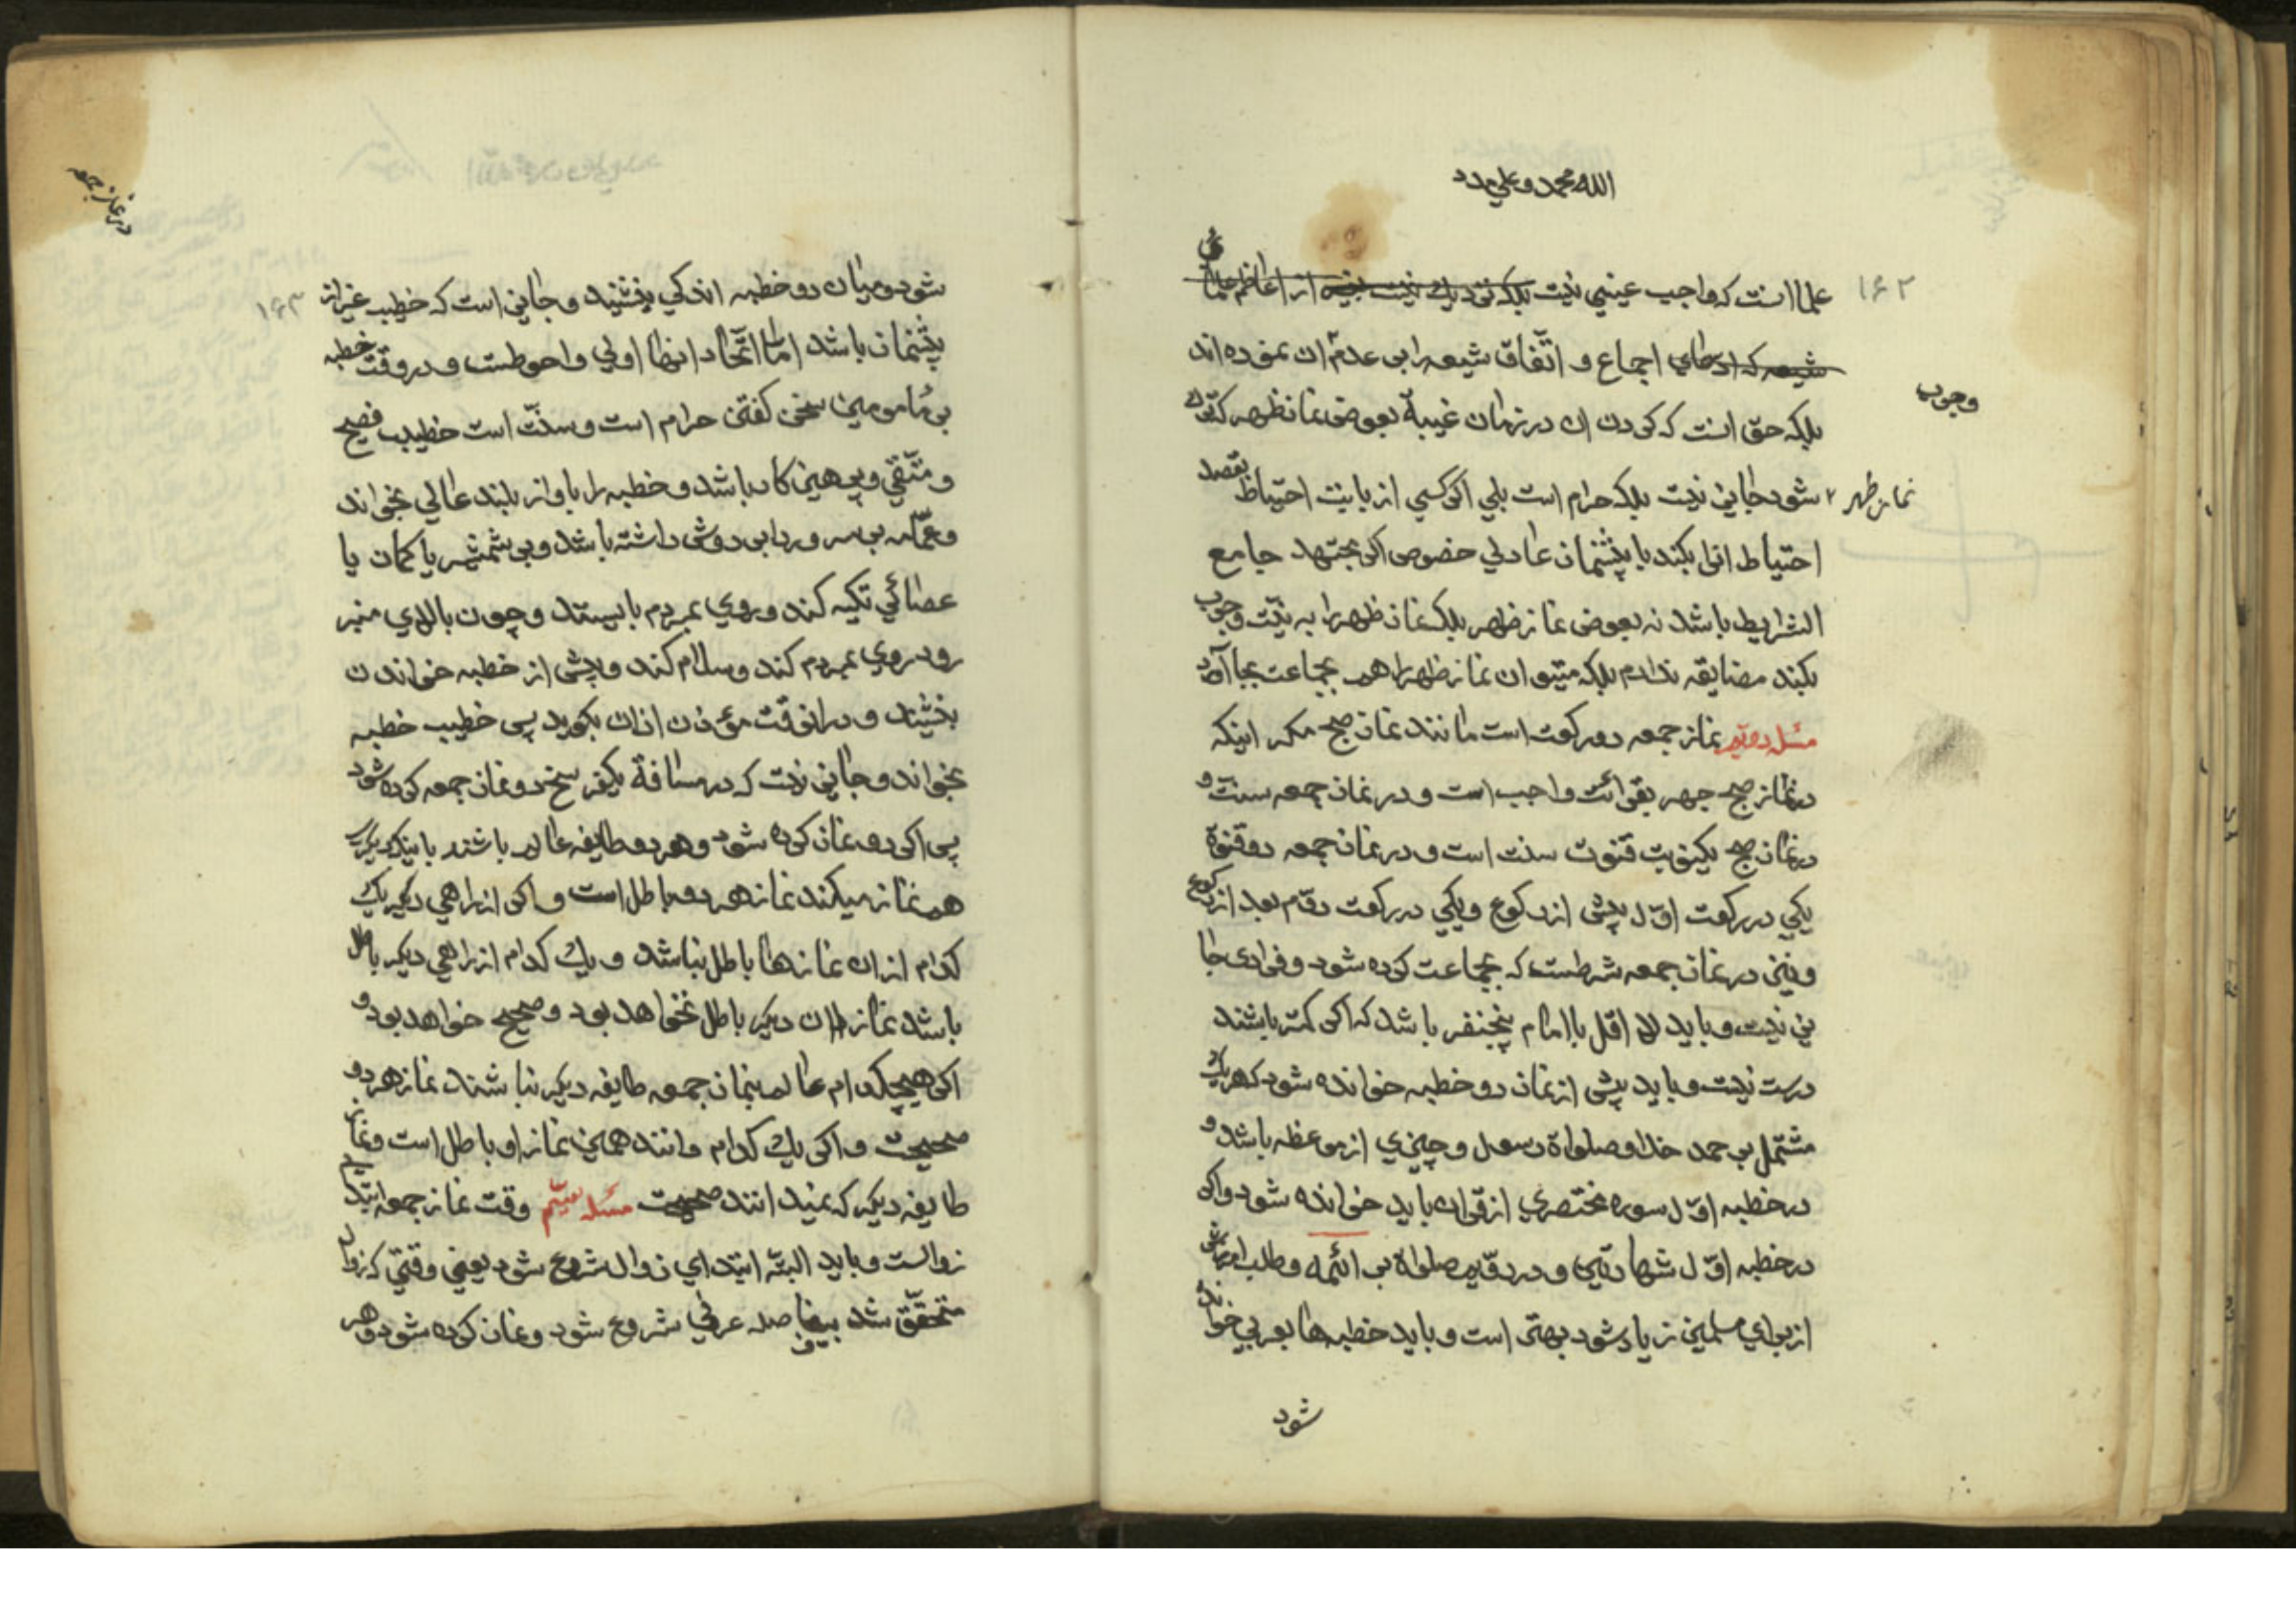 الله محمد و علي مدد
۱۶۲
علما انست که واجب عیني نیست بلکه نزدیك نیست از اعاظم علماء
شیعه که ادعاي اجماع و اتّفاق شیعه را بر عدم ان نموده اند
وجوب
بلکه حق انست که کردن ان در زمان غیبة بعوض نماز ظهر که ترك
نماز ظهر شود جایز نیست بلکه حرام است بلي اکر کسي از بابت احتیاط بقصد
احتیاط انرا بکند با پیشنماز عادلي خصوص اکر مجتهد جامع
الشرایط باشد نه بعوض نماز ظهر بلکه نماز ظهر را به نیّت وجوب
بکند مضایقه ندارم بلکه میتوان نماز ظهر را هم بجماعت بجا آورد
مسئله دویّم نماز جمعه دو رکعت است مانند نماز صبح مکر اینکه
در نماز صبح جهر بقرائت واجب است و در نماز جمعه سنت و
در نماز صبح یکنوبت قنوت سنت است و در نماز جمعه دو قنوة
یکي در رکعت اوّل پیش از رکوع و یکي در رکعت دوّم بعد از رکوع
و نیز در نماز جمعه شرطست که بجماعت کرده شود و فرادی جا
یز نیست و باید لا اقل با امام پنجنفر باشد که اکر کمتر باشند
درست نیست و باید پیش از نماز دو خطبه خوانده شود که هر یك
مشتمل بر حمد خدا و صلواة رسول و چیزي از موعظه باشد و
در خطبه اوّل سوره مختصري از قران باید خوانده شود و اکر
در خطبه اوّل شهادتین و در دوّیم صلواة بر ائمه و طلب امرزش
از براي مسلمین زیاد شود بهتر است و باید خطبه ها بعربي خوانده
شود
در نماز جمعه
۱۶۳
شود و میان دو خطبه اندکي بنشیند و جایز است که خطیب غیر از
پیشنماز باشد امّا اتّحاد انها اولي و احوطست و در وقت خطبه
بر مامومین سخن کفتن حرام است و سنّت است خطیب فصیح
و متّقي و پرهیزکار باشد و خطبه را باواز بلند عالي بخواند
و عمّامه بر سر و ردا بر دوش داشته باشد و بر شمشیر یا کمان یا
عصائي تکیه کند و روي بمردم بایستد و چون بالاي منبر
رود روي بمردم کند و سلام کند و پیش از خطبه خواندن
بنشیند و در انوقت مؤذن اذان بکوید پس خطیب خطبه
بخواند و جایز نیست که در مسافة یکفرسخ دو نماز جمعه کرده شود
پس اکر دو نماز کرده شود و هر دو طایفه عالم باشند باینکه دیکري
هم نماز میکند نماز هر دو باطل است و اکر از راهي دیکر یك
کدام از ان نمازها باطل نباشد و یك کدام از راهي دیکر باطل
باشد نماز ان دیکر باطل نخواهد بود و صحیح خواهد بود و
اکر هیچکدام عالم بنماز جمعه طایفه دیکر نباشند نماز هر دو
صحیحست و اکر یك کدام دانند همین نماز او باطل است و نماز
طایفه دیکر که نمیدانند صحیحست مسئله سیّم وقت نماز جمعه ابتداي
زوالست و باید البته ابتداي زوال شروع شود یعني وقتي که زوال
متحقّق شد بیفاصله عرفي شروع شود و نماز کرده شود و هر